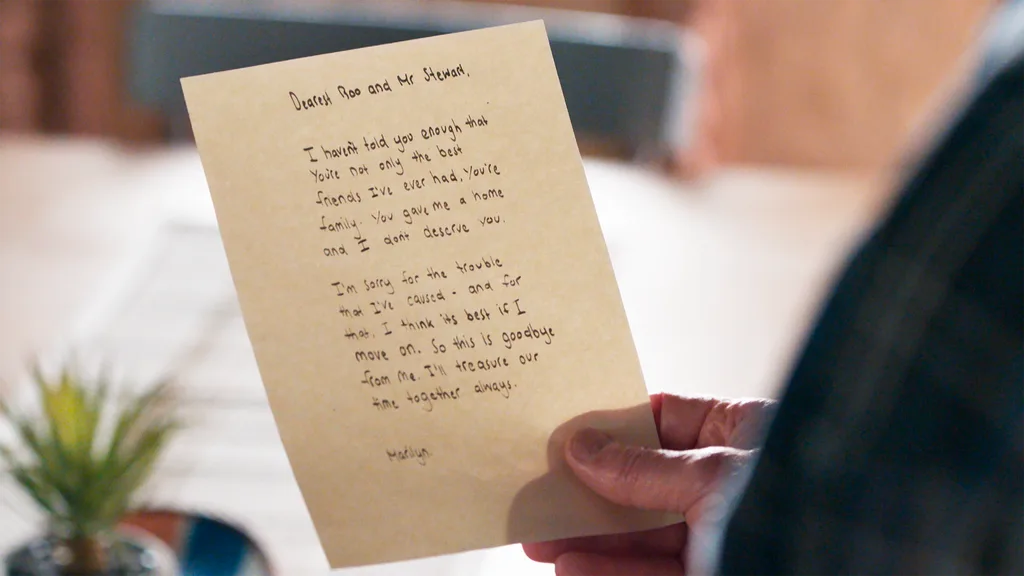 Dearest Roo and Mr Stewart,
I haven't told you enough that
you're not only the best
friends I've ever had. You're
family. You gave me a home
and I don't deserve you.
I'm sorry for the trouble
that I've caused - and for
that, I think its best if I
move on. So this is goodbye
from me. I'll treasure our
time together always.
Marilyn.